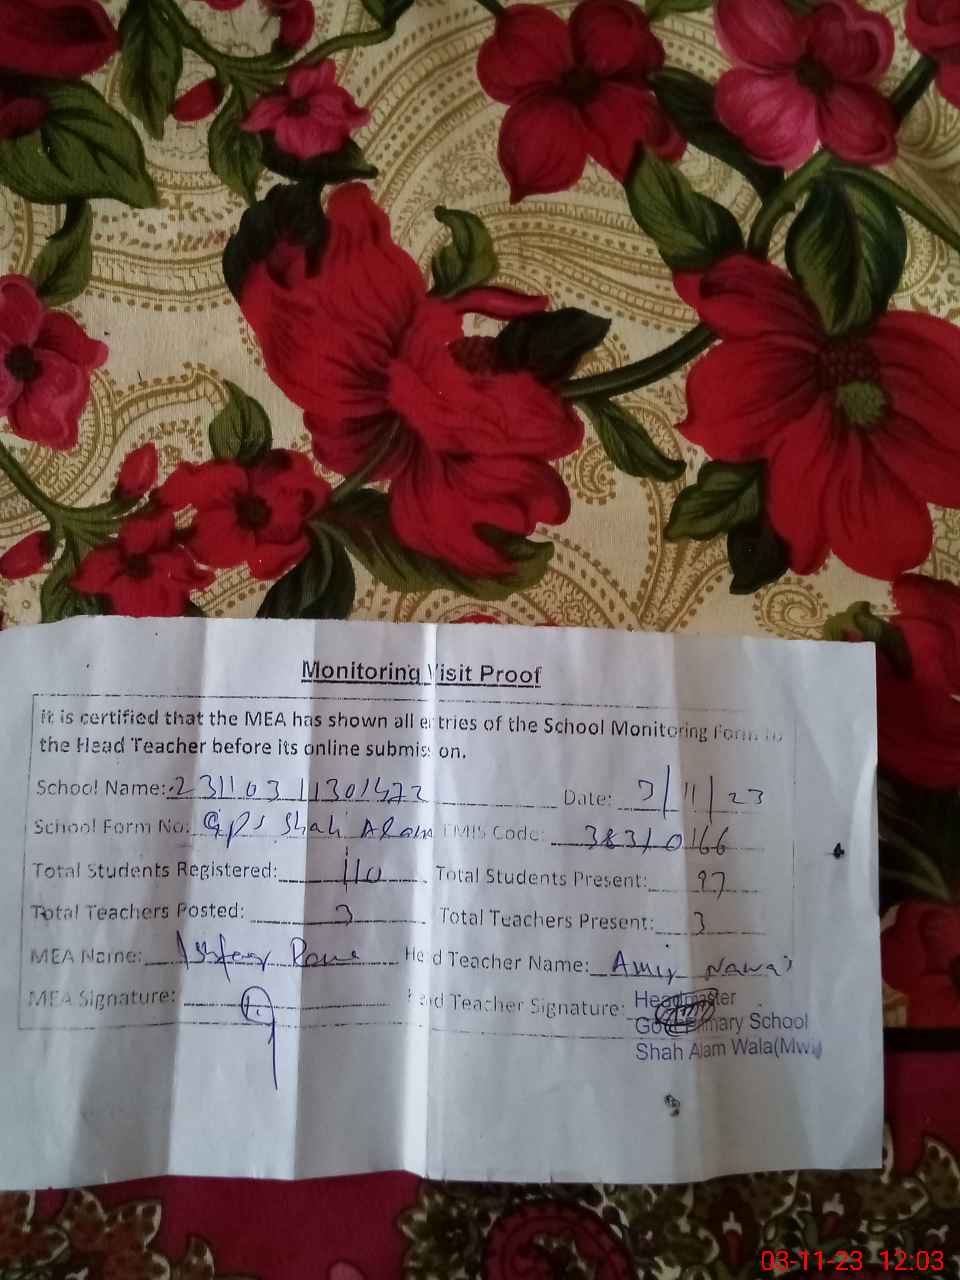 Monitoring Visit Proof
it is certified that the MEA has shown all entries of the School Monitoring Form to
the Head Teacher before its online submission.
School Name: 23110311301472 Date: 3/11/23
School Form No: GPS Shah Alam EMIS Code: 38310166
Total Students Registered: 110 Total Students Present: 97
Total Teachers Posted: 3 Total Teachers Present: 3
MEA Name: Head Teacher Name: Amir Nawaz
MEA Signature: Head Teacher Signature: Headmaster
Govt Primary School
Shah Alam Wala(Mwi)
03-11-23 12:03